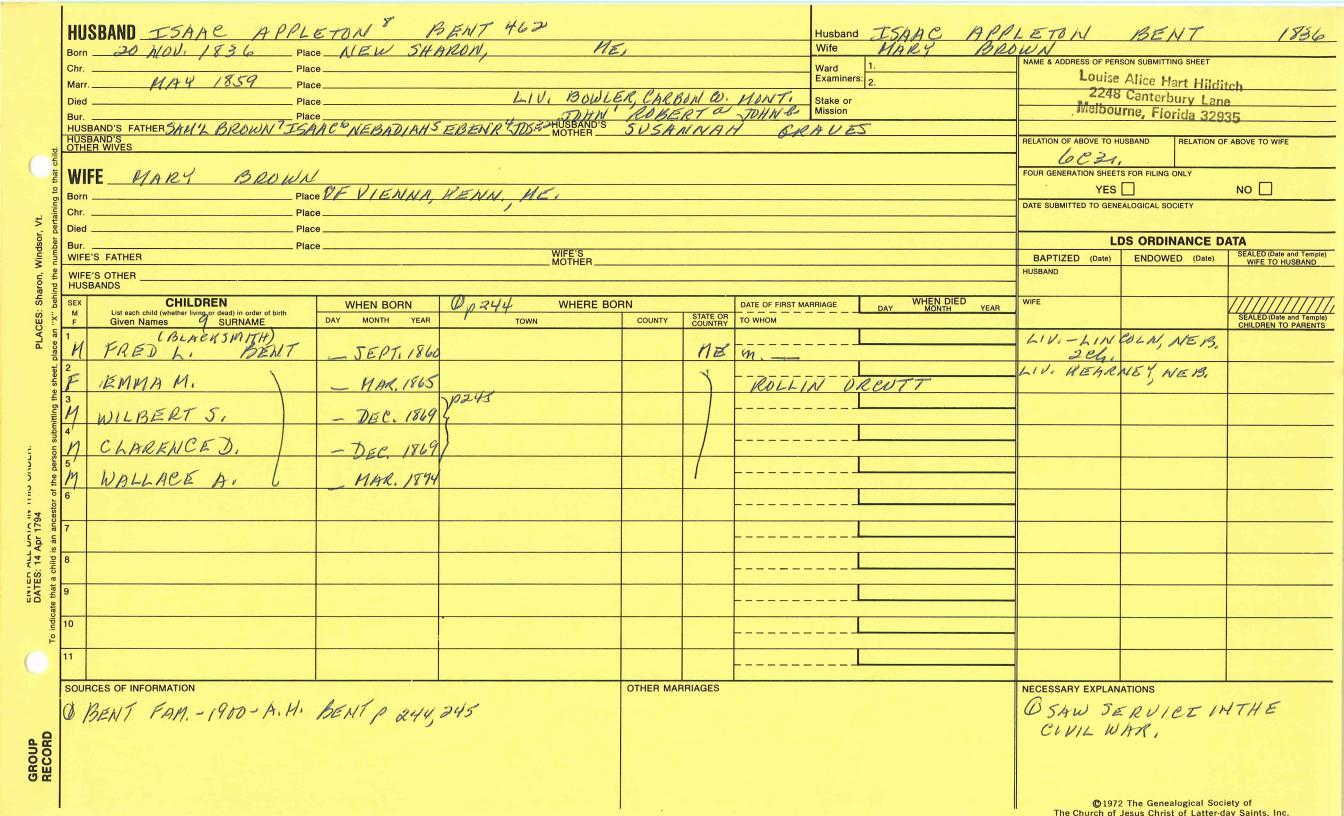 HUSBAND ISAAC APPLETON 8 BENT 462
Born 20 NOV. 1836 Place NEW SHARON, ME.
Chr. Place
Marr. MAY 1859 Place
Died Place LIV. BOWLER, CARBON CO. MONT.
Bur. Place JOHN 1 ROBERT a JOHN B
HUSBAND'S FATHER SAM'L BROWN 7 ISAAC 6 NEBADIAH 5 EBENR 4 JOS 3-2 HUSBAND'S MOTHER SUSANNAH GRAVES
HUSBAND'S OTHER WIVES
Husband ISAAC APPLETON BENT 1836
Wife MARY BROWN
Ward Examiners: 1.
2.
Stake or Mission
NAME & ADDRESS OF PERSON SUBMITTING SHEET
Louise Alice Hart Hilditch
2248 Canterbury Lane
Melbourne, Florida 32935
RELATION OF ABOVE TO HUSBAND RELATION OF ABOVE TO WIFE
6C3r.
FOUR GENERATION SHEETS FOR FILING ONLY
YES NO
DATE SUBMITTED TO GENEALOGICAL SOCIETY
WIFE MARY BROWN
Born Place OF VIENNA, KENN, ME.
Chr. Place
Died Place
Bur. Place
WIFE'S FATHER WIFE'S MOTHER
WIFE'S OTHER HUSBANDS
LDS ORDINANCE DATA
BAPTIZED (Date) ENDOWED (Date) SEALED (Date and Temple) WIFE TO HUSBAND
HUSBAND
WIFE
SEALED (Date and Temple) CHILDREN TO PARENTS
SEX M F CHILDREN WHEN BORN ① p244 WHERE BORN DATE OF FIRST MARRIAGE WHEN DIED
List each child (whether living or dead) in order of birth
Given Names 9 SURNAME DAY MONTH YEAR TOWN COUNTY STATE OR COUNTRY TO WHOM DAY MONTH YEAR
(BLACKSMITH)
1 M FRED L. BENT — SEPT. 1860 ME m. — LIV.-LINCOLN, NEB.
2ch.
2 F EMMA M. — MAR. 1865 ROLLIN ORCUTT LIV. KEARNEY, NEB.
3 M WILBERT S. — DEC. 1869 p245
4 M CLARENCE D. — DEC. 1869
5 M WALLACE A. — MAR. 1874
6
7
8
9
10
11
SOURCES OF INFORMATION
① BENT FAM.-1900-A.H. BENT p 244,245
OTHER MARRIAGES
NECESSARY EXPLANATIONS
① SAW SERVICE IN THE
CIVIL WAR.
©1972 The Genealogical Society of
The Church of Jesus Christ of Latter-day Saints, Inc.
PLACES: Sharon, Windsor, Vt.
To indicate that a child is an ancestor of the person submitting the sheet, place an "X" behind the number pertaining to that child.
ENTER ALL DATA IN THIS ORDER:
DATES: 14 Apr 1794
GROUP
RECORD